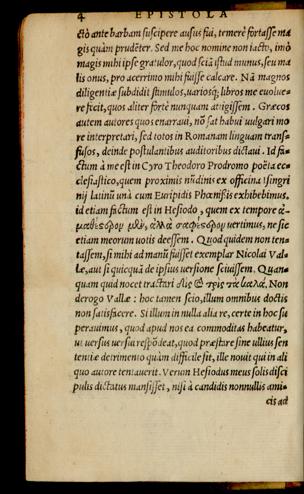 4 EPISTOLA
ctò ante barbam suscipere ausus sui, temerè fortasse ma
gis quàm prudẽter. Sed me hoc nomine non iacto, imò
magis mihi ipse gratulor, quod sciã istud munus, seu ma
lis onus, pro acerrimo mihi fuisse calcare. Nã magnos
diligentiæ subdidit stimulos, variosq́; libros me euolue-
re fecit, quos aliter fortè nunquam attigissem. Græcos
autem autores quos enarraui, nõ sat habui uulgari mo
re interpretari, sed totos in Romanam linguam trans-
fusos, deinde postulantibus auditoribus dictaui. Id fa-
ctum à me est in Cyro Theodoro Prodromo poëta ec-
clesiastico, quem proximis nũdinis ex officina Isingri
nij latinũ unà cum Euripidis Phœnissis exhibebimus,
id etiam factum est in Hesiodo, quem ex tempore
uertimus, ne sic
etiam meorum uotis deessem. Quod quidem non ten-
tassem, si mihi ad manũ fuisset exemplar Nicolai Val-
læ, aut si quicquã de ipsius uersione sciuissem. Quan-
quam quid nocet tractari δὶς καὶ τρὶς τὰ καλά. Non
derogo Vallæ: hoc tamen scio, illum omnibus doctis
non satisfacere. Si illum in nulla alia re, certe in hoc su
perauimus, quod apud nos ea commoditas habeatur,
ut uersus uersui respõdeat, quod præstare sine ullius sen
tentiæ detrimento quàm difficile sit, ille nouit qui in ali
quo autore tentauerit. Verum Hesiodus meus solis disci
pulis dictatus mansisset, nisi à candidis nonnullis ami-
cis ad